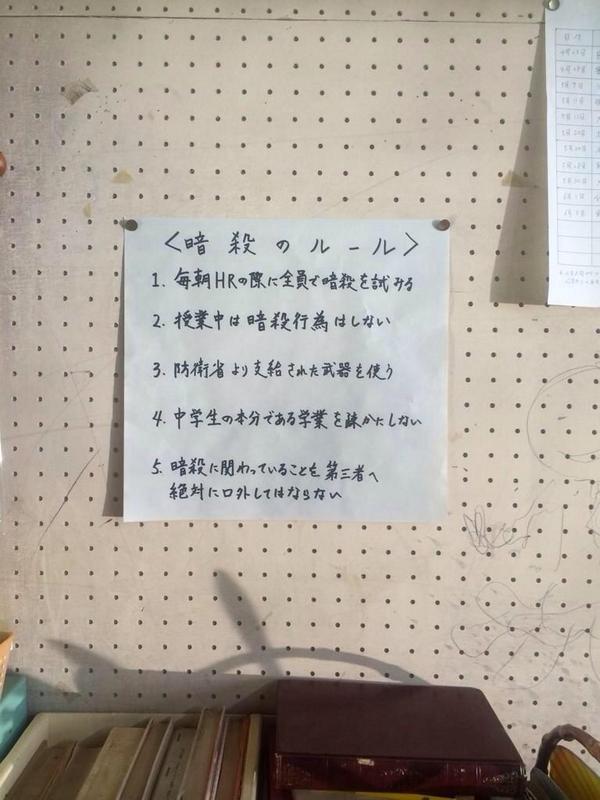 ＜暗殺のルール＞
1. 毎朝HRの際に全員で暗殺を試みる
2. 授業中は暗殺行為はしない
3. 防衛省より支給された武器を使う
4. 中学生の本分である学業を疎かにしない
5. 暗殺に関わっていることを第三者へ
絶対に口外してはならない